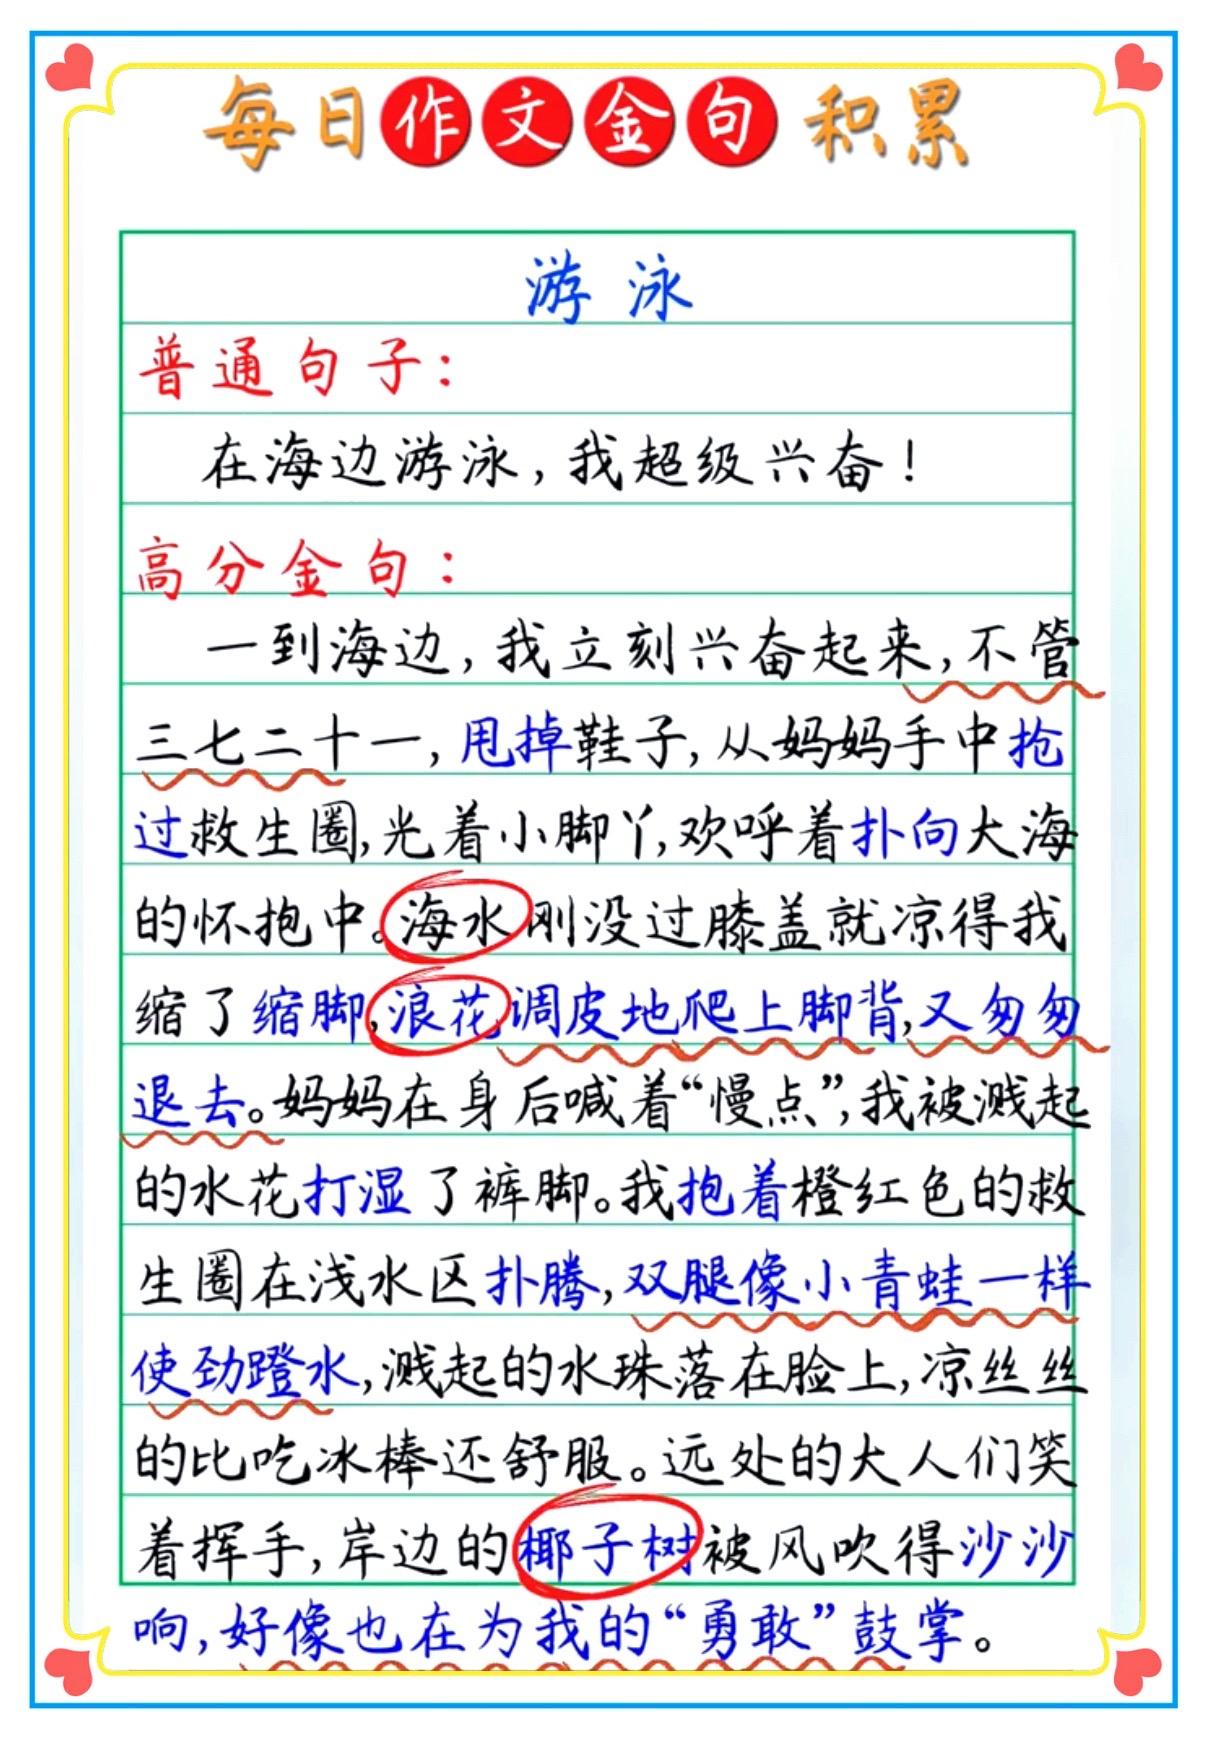 每日作文金句积累
游泳
普通句子：
在海边游泳，我超级兴奋！
高分金句：
一到海边，我立刻兴奋起来，不管
三七二十一，甩掉鞋子，从妈妈手中抢
过救生圈，光着小脚丫，欢呼着扑向大海
的怀抱中。海水刚没过膝盖就凉得我
缩了缩脚，浪花调皮地爬上脚背，又匆匆
退去。妈妈在身后喊着“慢点”，我被溅起
的水花打湿了裤脚。我抱着橙红色的救
生圈在浅水区扑腾，双腿像小青蛙一样
使劲蹬水，溅起的水珠落在脸上，凉丝丝
的比吃冰棒还舒服。远处的大人们笑
着挥手，岸边的椰子树被风吹得沙沙
响，好像也在为我的“勇敢”鼓掌。